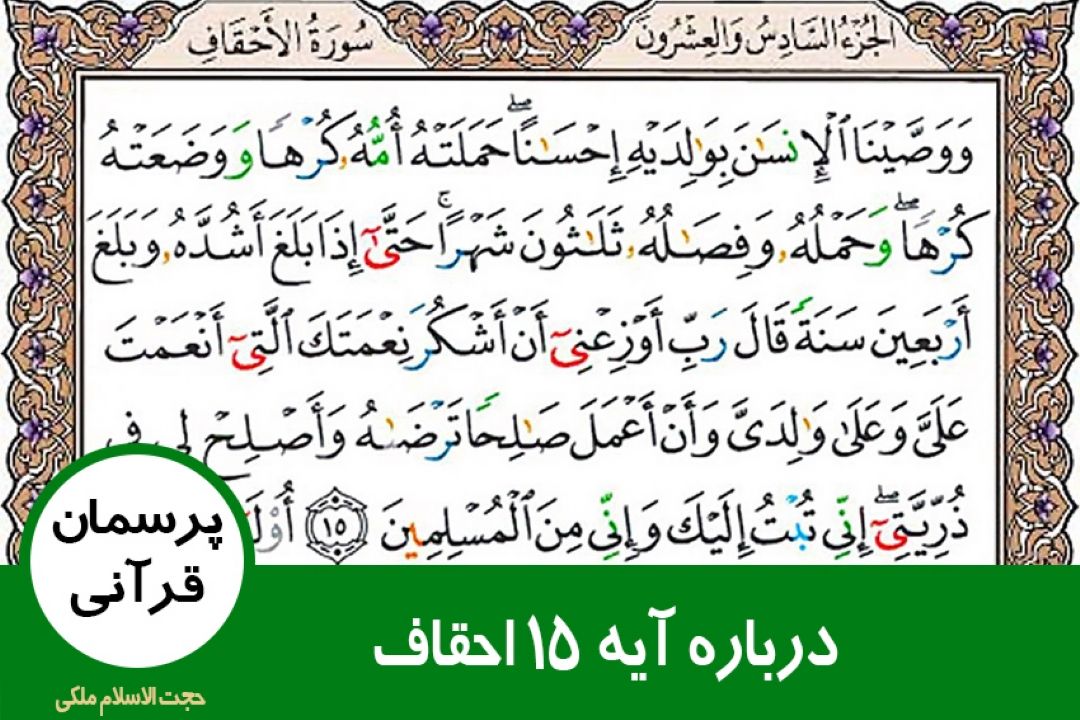 الجُزءُ السَّادِسُ وَالعِشْرُونَ
سُورَةُ الأَحْقَافِ
وَوَصَّيْنَا ٱلْإِنسَٰنَ بِوَٰلِدَيْهِ إِحْسَٰنًاۖ حَمَلَتْهُ أُمُّهُۥ كُرْهًا وَوَضَعَتْهُ
كُرْهًاۖ وَحَمْلُهُۥ وَفِصَٰلُهُۥ ثَلَٰثُونَ شَهْرًاۚ حَتَّىٰٓ إِذَا بَلَغَ أَشُدَّهُۥ وَبَلَغَ
أَرْبَعِينَ سَنَةً قَالَ رَبِّ أَوْزِعْنِىٓ أَنْ أَشْكُرَ نِعْمَتَكَ ٱلَّتِىٓ أَنْعَمْتَ
عَلَىَّ وَعَلَىٰ وَٰلِدَىَّ وَأَنْ أَعْمَلَ صَٰلِحًا تَرْضَىٰهُ وَأَصْلِحْ لِى فِى
ذُرِّيَّتِىٓۖ إِنِّى تُبْتُ إِلَيْكَ وَإِنِّى مِنَ ٱلْمُسْلِمِينَ ١٥
پرسمان
قرآنی
درباره آیه ۱۵ احقاف
حجت الاسلام ملکی